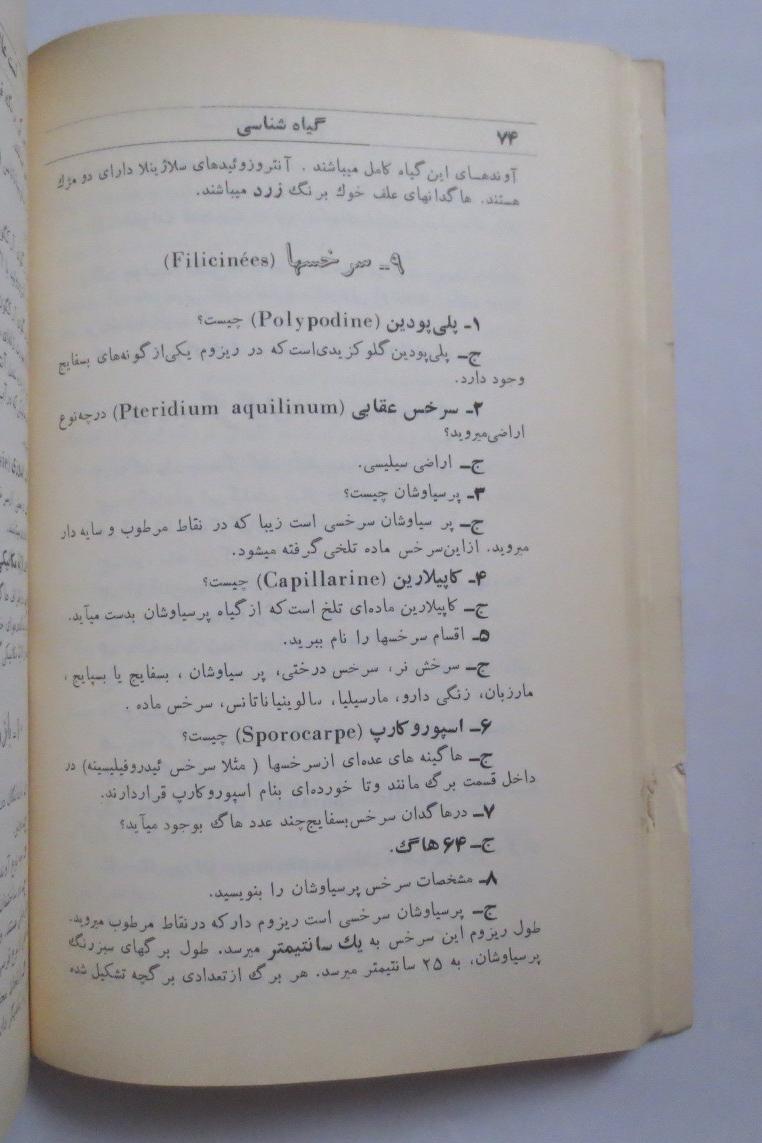 ۷۴ گیاه شناسی
آوندهـای این گیاه کامل میباشند . آنتروزوئیدهای سلاژینلا دارای دو مژك
هستند. هاگدانهای علف خوك برنگ زرد میباشند.
۹ـ سرخسها (Filicinées)
۱ـ پلی‌پودین (Polypodine) چیست؟
ج‌ـ پلی‌پودین گلو کزیدی‌است که در ریزوم یکی‌از گونه‌های بسفایج
وجود دارد.
۲ـ سرخس عقابی (Pteridium aquilinum) درچه‌نوع
اراضی‌میروید؟
ج‌ـ اراضی سیلیسی.
۳ـ پرسیاوشان چیست؟
ج‌ـ پر سیاوشان سرخسی است زیبا که در نقاط مرطوب و سایه دار
میروید. ازاین‌سرخس ماده تلخی‌گرفته میشود.
۴ـ کاپیلارین (Capillarine) چیست؟
ج‌ـ کاپیلارین ماده‌ای تلخ است‌که ازگیاه پرسیاوشان بدست میآید.
۵ـ اقسام سرخسها را نام ببرید.
ج‌ـ سرخش نر، سرخس درختی، پر سیاوشان ، بسفایج یا بسپایج ،
مارزبان، زنگی دارو، مارسیلیا، سالوینیاناتانس، سرخس ماده .
۶ـ اسپوروکارپ (Sporocarpe) چیست؟
ج‌ـ هاگینه های عده‌ای ازسرخسها ( مثلا سرخس ئیدروفیلیسینه) در
داخل قسمت برگ مانند وتا خورده‌ای بنام اسپوروکارپ قراردارند.
۷ـ درهاگدان سرخس‌بسفایج‌چند عدد هاگ بوجود میآید؟
ج‌ـ ۶۴ هاگ.
۸ـ مشخصات سرخس پرسیاوشان را بنویسید.
ج‌ـ پرسیاوشان سرخسی است ریزوم دارکه درنقاط مرطوب میروید.
طول ریزوم این سرخس به یك سانتیمتر میرسد. طول برگهای سبزرنگ
پرسیاوشان، به ۲۵ سانتیمتر میرسد. هر برگ ازتعدادی برگچه تشکیل شده